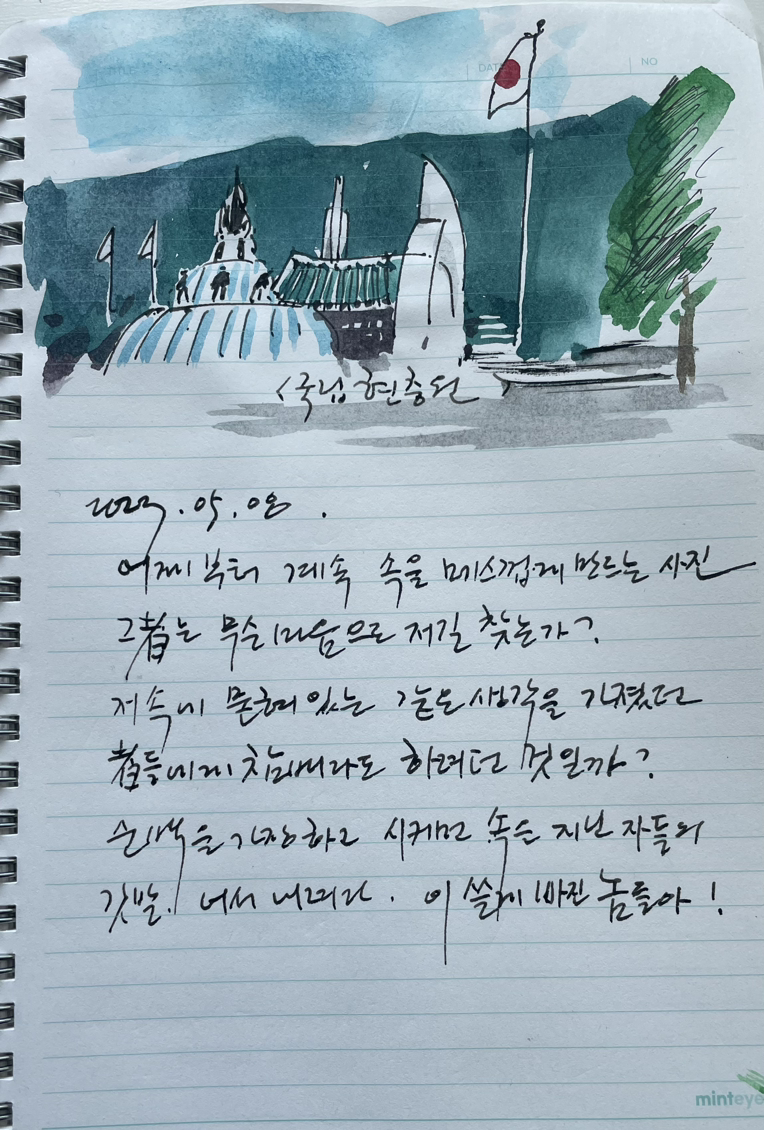 DATE
NO
<국립 현충원>
2023.05.08.
어제부터 계속 속을 메스껍게 만드는 사진
그者는 무슨 마음으로 저길 찾는가?
저 속에 묻혀 있는 같은 생각을 가졌던
者들에게 참배라도 하려던 것일까?
순백을 가장하고 시커먼 속을 지닌 자들의
깃발. 어서 내려라. 이 쓸개 빠진 놈들아!
minteye